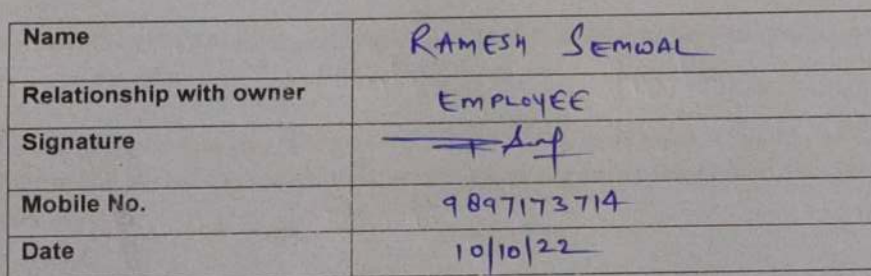 Name RAMESH SEMWAL
Relationship with owner EMPLOYEE
Signature
Mobile No. 9897173714
Date 10/10/22